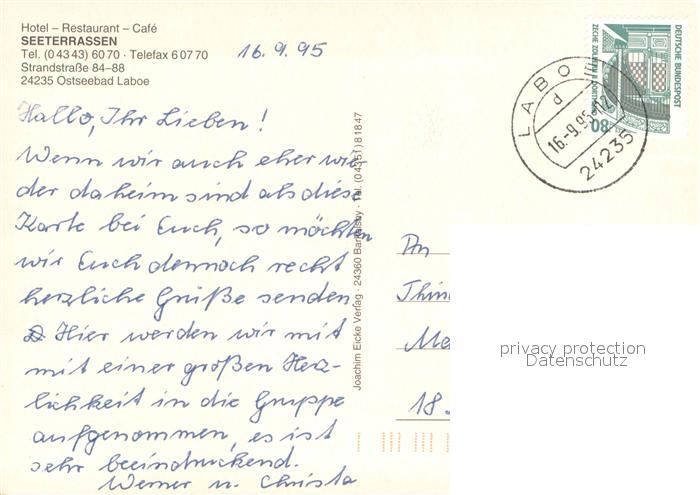 Hotel – Restaurant – Café
SEETERRASSEN
Tel. (0 43 43) 60 70 · Telefax 6 07 70
Strandstraße 84–88
24235 Ostseebad Laboe
16.9.95
Hallo, Ihr Lieben!
Wenn wir auch eher wie-
der daheim sind als diese
Karte bei Euch, so möchten
wir Euch dennoch recht
herzliche Grüße senden
Hier werden wir mit
mit einer großen Herz-
lichkeit in die Gruppe
aufgenommen, es ist
sehr beeindruckend.
Werner u. Christa
Joachim Eicke Verlag · 24360 Barkelsby · Tel. (0 43 51) 8 18 47
DEUTSCHE BUNDESPOST
ZECHE ZOLLERN II DORTMUND
80
LABO
d
16.-9.95-12
24235
An
18.
privacy protection
Datenschutz